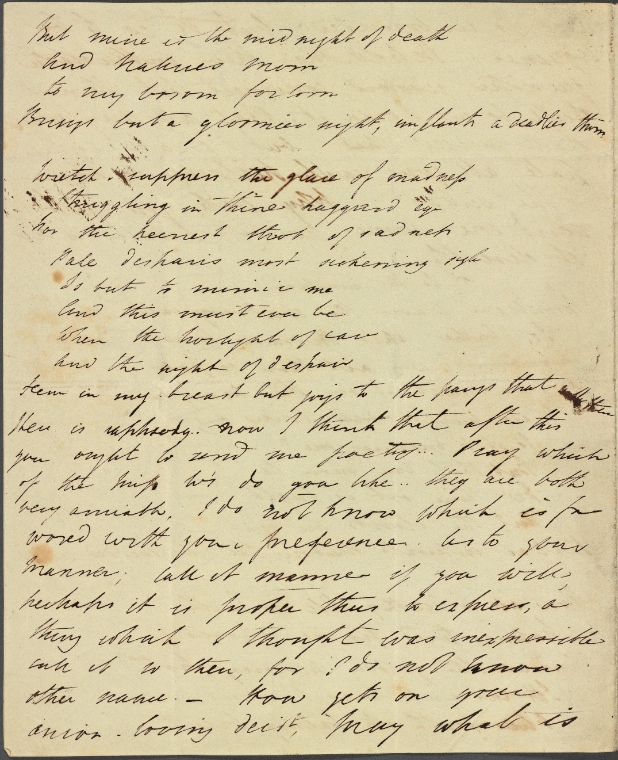 But mine is the midnight of death
And Natures morn
to my bosom forlorn
Brings but a gloomier night, implants a deadlier thorn
Wretch suppress the glare of madness
Struggling in thine haggard eye
For the keenest throb of sadness
Pale despairs most sickening sigh
Is but to mimic me
And this must ever be
When the twilight of care
And the night of despair
Seem in my breast but joys to the pangs that
Here is rhapsody. now I think that after this
you ought to send me poetry... Pray which
of the Miss do you like .. they are both
very amiable, I do not know which is fa
vored with your preference. As to your
Manner; call it manner if you will,
perhaps it is proper thus to express, a
thing which I thought was inexpressible
call it so then, for I do not know
other name. — How gets on your
loving deist Pray what is